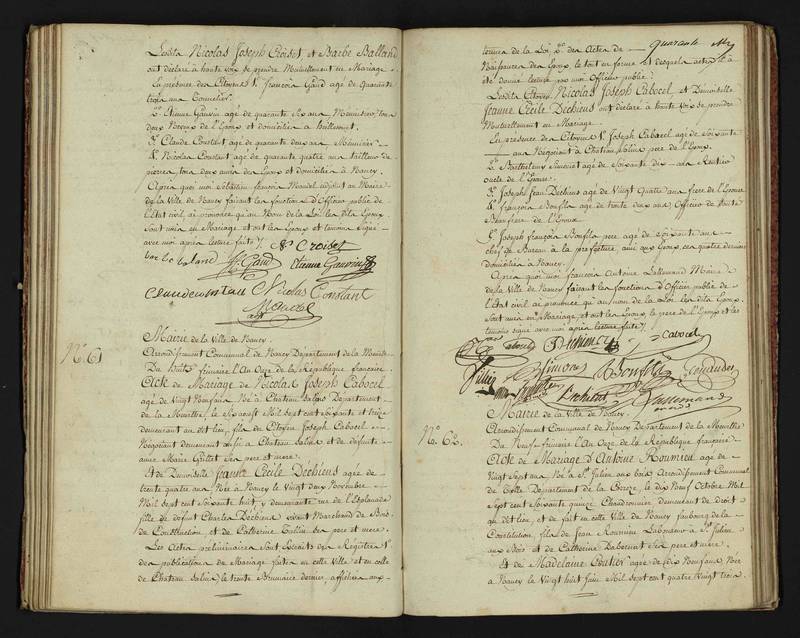 Lesdits Nicolas Joseph Croiset, et Barbe Balland
ont déclaré à haute voix se prendre Mutuellement en Mariage.
En présence des Citoyens 1° françois Gaud agé de quarante
trois ans Tonnelier.
2° Etienne Gauvin agé de quarante six ans Menuisier, tous
deux de l'Epoux et domiciliés à
3° Claude Constant agé de quarante deux ans
4° Nicolas Constant agé de quarante quatre ans tailleur de
pierres, tous deux amis des Epoux et domiciliés à Nancy.
Après quoi moi sébastien françois Mandel adjoint au Maire
de la Ville de Nancy faisant les fonctions d'Officier public de
l'Etat civil, ai prononcé qu'au Nom de la Loi, lesdits Epoux
sont unis en Mariage et ont les Epoux et témoins signé
avec moi après lecture faite.
N Croiset
barbe baland
Gaud
Etienne Gauvin
Claude constant
Nicolas Constant
Mandel
adjt
N° 61
Mairie de la Ville de Nancy.
Arrondissement Communal de Nancy Département de la Meurthe
Du huit frimaire l'An Onze de la République française
Acte de Mariage de Nicolas Joseph Cabocel
agé de Vingt Neuf ans Né à Chateau Salins Département
de la Meurthe, le sept Mil sept cent soixante et treize
demeurant audit lieu, fils du Citoyen Joseph Cabocel
Négociant demeurant aussi à Chateau Salins et de défunte
Marie ses pere et mere.
Et de Demoiselle Jeanne Cécile Dechiens agée de
trente quatre ans Née à Nancy le Vingt deux Novembre
Mil sept cent soixante huit, y demeurante rue de l'Esplanade
fille de défunt Charles Dechiens vivant Marchand de Bois
de Construction, et de Catherine ses pere et mere.
Les Actes préliminaires sont Extraits des Régistres 1°
des publications de Mariage faites en cette Ville et en celle
de Chateau salins le trente Brumaire dernier, affichées aux
termes de la Loi 2° des Actes de
Naissances des Epoux, le tout en forme et desquels actes il a
été donné lecture par moi Officier public.
Lesdits Citoyen Nicolas Joseph Cabocel et Demoiselle
Jeanne Cécile Dechiens ont déclaré à haute voix se prendre
Mutuellement en Mariage.
En présence des Citoyens 1° Joseph Cabocel agé de soixante
ans Négociant à Chateau salins pere de l'Epoux.
2° Barthelemy agé de soixante dix ans Rentier
oncle de l'Epouse.
3° Joseph Jean Dechiens agé de Vingt Quatre ans frere de l'Epouse
4° françois Bonfils agé de trente six ans Officier de Santé
Beaufrere de l'Epouse
5° Joseph françois Bonfils pere, agé de soixante ans
chef de Bureau à la préfecture, ami des Epoux, ces quatre derniers
domiciliés à Nancy.
Après quoi moi françois Antoine Lallemand Maire
de la Ville de Nancy faisant les fonctions d'Officier public de
l'Etat civil ai prononcé qu'au nom de la Loi, lesdits Epoux
sont unis en Mariage, et ont les Epoux, le pere de l'Epoux et les
témoins signé avec moi après lecture faite.
Cabocel
Dechiens
Cabocel
Simon
Bonfils
Lallemand
maire
N° 62.
Mairie de la Ville de Nancy.
Arrondissement Communal de Nancy Département de la Meurthe
Du Neuf frimaire l'An Onze de la République française
Acte de Mariage d'Antoine Roumieu agé de
Vingt Sept ans Né à St Julien aux bois Arrondissement Communal
de Département de la Correze, le dix Neuf Octobre Mil
sept cent Soixante quinze Chaudronnier demeurant de droit
audit lieu, et de fait en cette Ville de Nancy faubourg de la
Constitution, fils de Jean Roumieu Laboureur à St Julien
aux Bois et de Catherine ses pere et mere.
Et de Madelaine agée de dix Neuf ans Née
à Nancy le Vingt huit Juin Mil sept cent quatre Vingt trois.